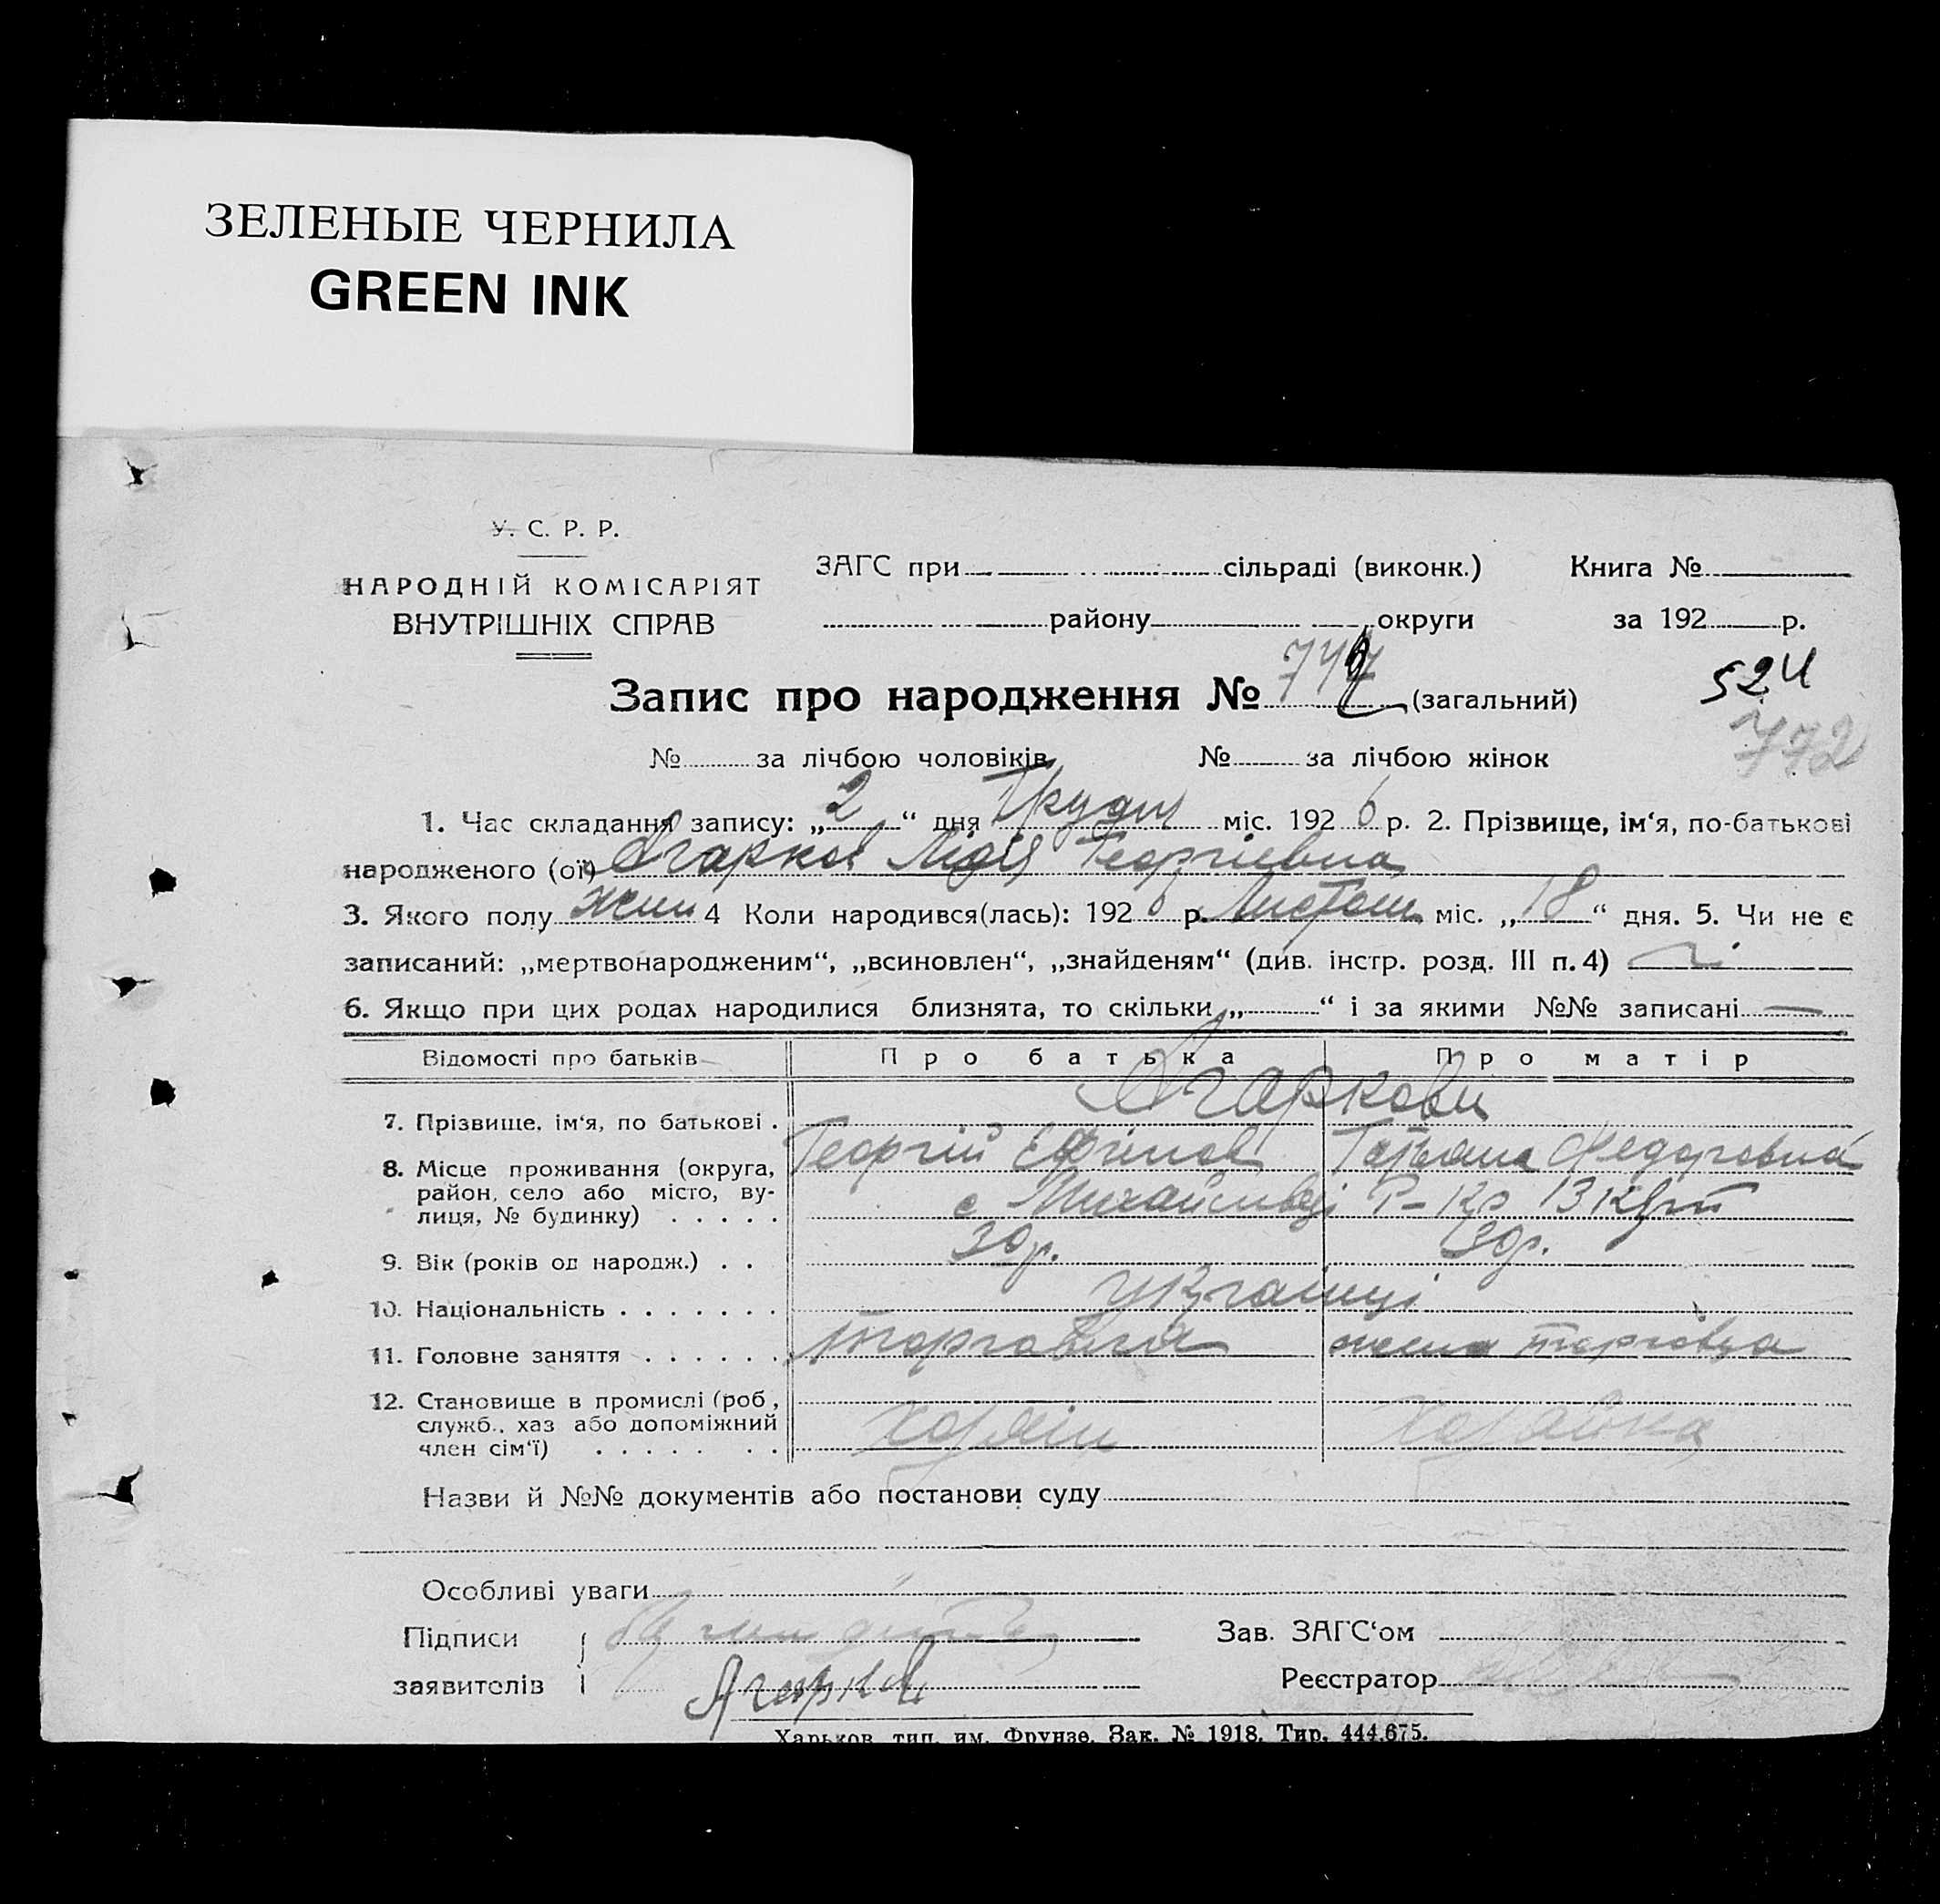 ЗЕЛЕНЫЕ ЧЕРНИЛА
GREEN INK
У. С. Р. Р.
НАРОДНІЙ КОМІСАРІЯТ
ВНУТРІШНІХ СПРАВ
ЗАГС при сільраді (виконк.) Книга №
району округи за 192 р.
524
Запис про народження № (загальний)
772
№ за лічбою чоловіків № за лічбою жінок
1. Час складання запису: „2“ дня Грудн міс. 1926 р. 2. Прізвище, ім‘я, по-батькові
народженого (ої) Агарков Лідія Георгіевна
3. Якого полу жин 4 Коли народився(лась): 1926 р. Листопа міс. „18“ дня. 5. Чи не є
записаний: „мертвонародженим“, „всиновлен“, „знайденям“ (див. інстр. розд. III п. 4) ні
6. Якщо при цих родах народилися близнята, то скільки „ “ і за якими №№ записані —
Відомості про батьків Про батька Про матір
Агаркови
7. Прізвище, ім‘я, по батькові .
Георгій Ефімов Татьяна Федоровна
8. Місце проживання (округа,
район, село або місто, ву-
лиця, № будинку) . . . . .
с Михайлівці Р-Ка 13
9. Вік (років од народж.) . . 30 р. 30 р.
10. Національність . . . . . . . українці
11. Головне заняття . . . . . . торговля жена торговца
12. Становище в промислі (роб.,
служб., хаз або допоміжний
член сім‘ї) . . . . . . . хозяін хозяйка
Назви й №№ документів або постанови суду
Особливі уваги
Підписи Зав. ЗАГС‘ом
заявителів Агарков Реєстратор
Харьков, тип. им. Фрунзе. Зак. № 1918. Тир. 444.675.